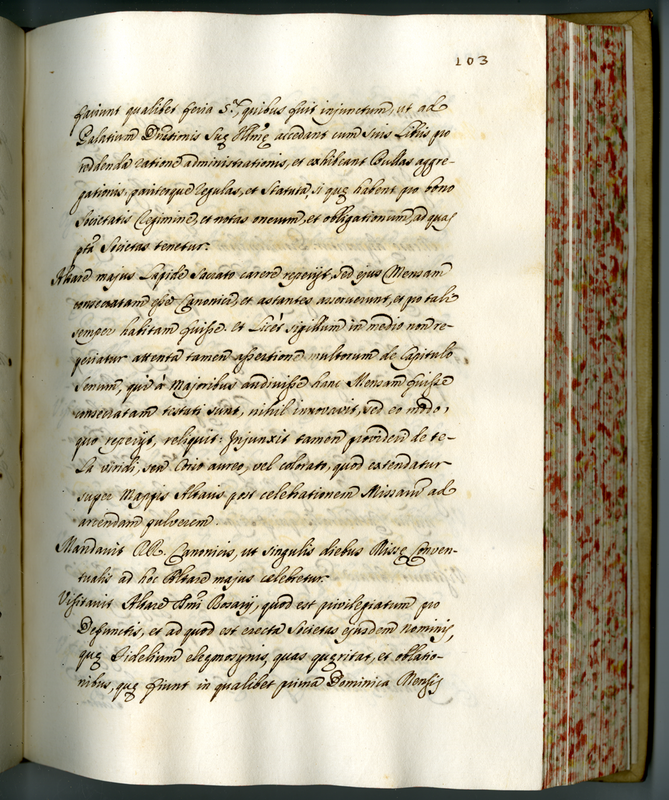 103
fariunt qualibet feria 5.ª, quibus fuit injunctum, ut ad
Palatium Dnationis Suę Illmę accedant cum suis Libris pro
reddenda ratione administrationis, et exhibeant Bullas aggre-
gationis, pariterque regulas, et Statuta, si quę habent pro bono
Societatis Regimine, et notas onerum, et obligationum, ad quas
pta Societas tenetur.
Altare majus Lapide Sacrato carere reperijt, sed ejus Mensam
consecratam esse Canonici, et astantes asseruerunt, et pro tali
semper habitam fuisse. Et Licèt sigillum in medio non re-
periatur attenta tamen assertione multorum de Capitulo
Senum, qui à Majoribus audivisse hanc Mensam fuisse
consecratam testati sunt, nihil innovavit, sed eo modo,
quo reperijt, reliquit: Injunxit tamen provideri de te-
la viridi, seu Corio aureo, vel colorato, quod extendatur
super Mappis Altaris post celebrationem Missarum ad
arcendam pulverem.
Mandavit RR. Canonicis, ut singulis diebus Missę Conven-
tualis ad hoc Altare majus celebretur.
Visitavit Altare Smi Rosarij, quod est privilegiatum pro
Defunctis, et ad quod est erecta Societas ejusdem nominis,
quę Fidelium eleęmosynis, quas quęritat, et oblatio-
nibus, quę fiunt in qualibet prima Dominica Mensis